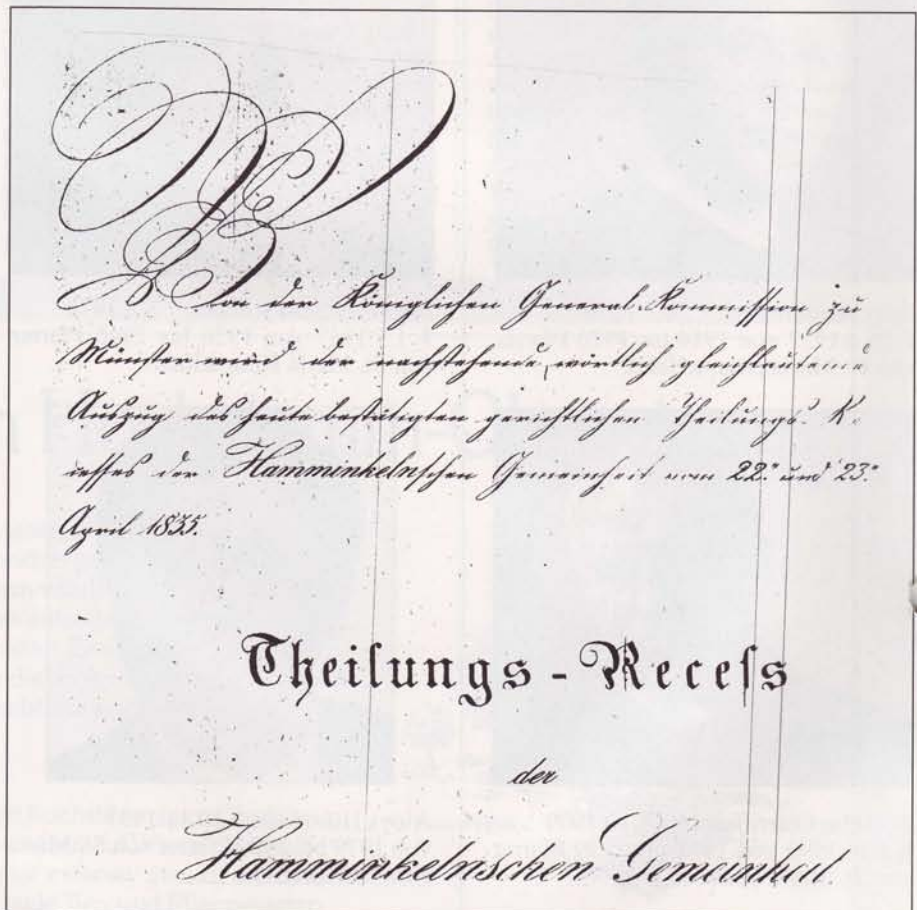 Von der Königlichen General-Kommission zu
Münster wird der nachstehende, wörtlich gleichlautende
Auszug des heute bestätigten gerichtlichen Theilungs-Re-
cesses der Hamminkelnschen Gemeinheit vom 22ᵗ und 23ᵗ
April 1835.
Theilungs-Recess
der
Hamminkelnschen Gemeinheit.